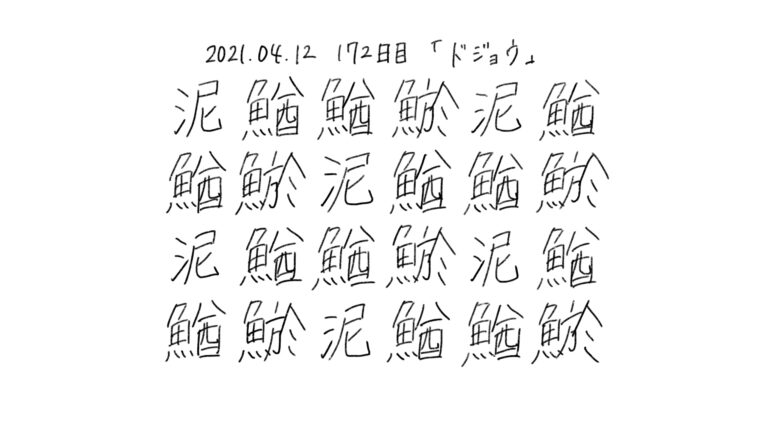 2021.04.12 172日目 「ドジョウ」
泥鰌鰌鯲泥鰌
鰌鯲泥鰌鰌鯲
泥鰌鰌鯲泥鰌
鰌鯲泥鰌鰌鯲